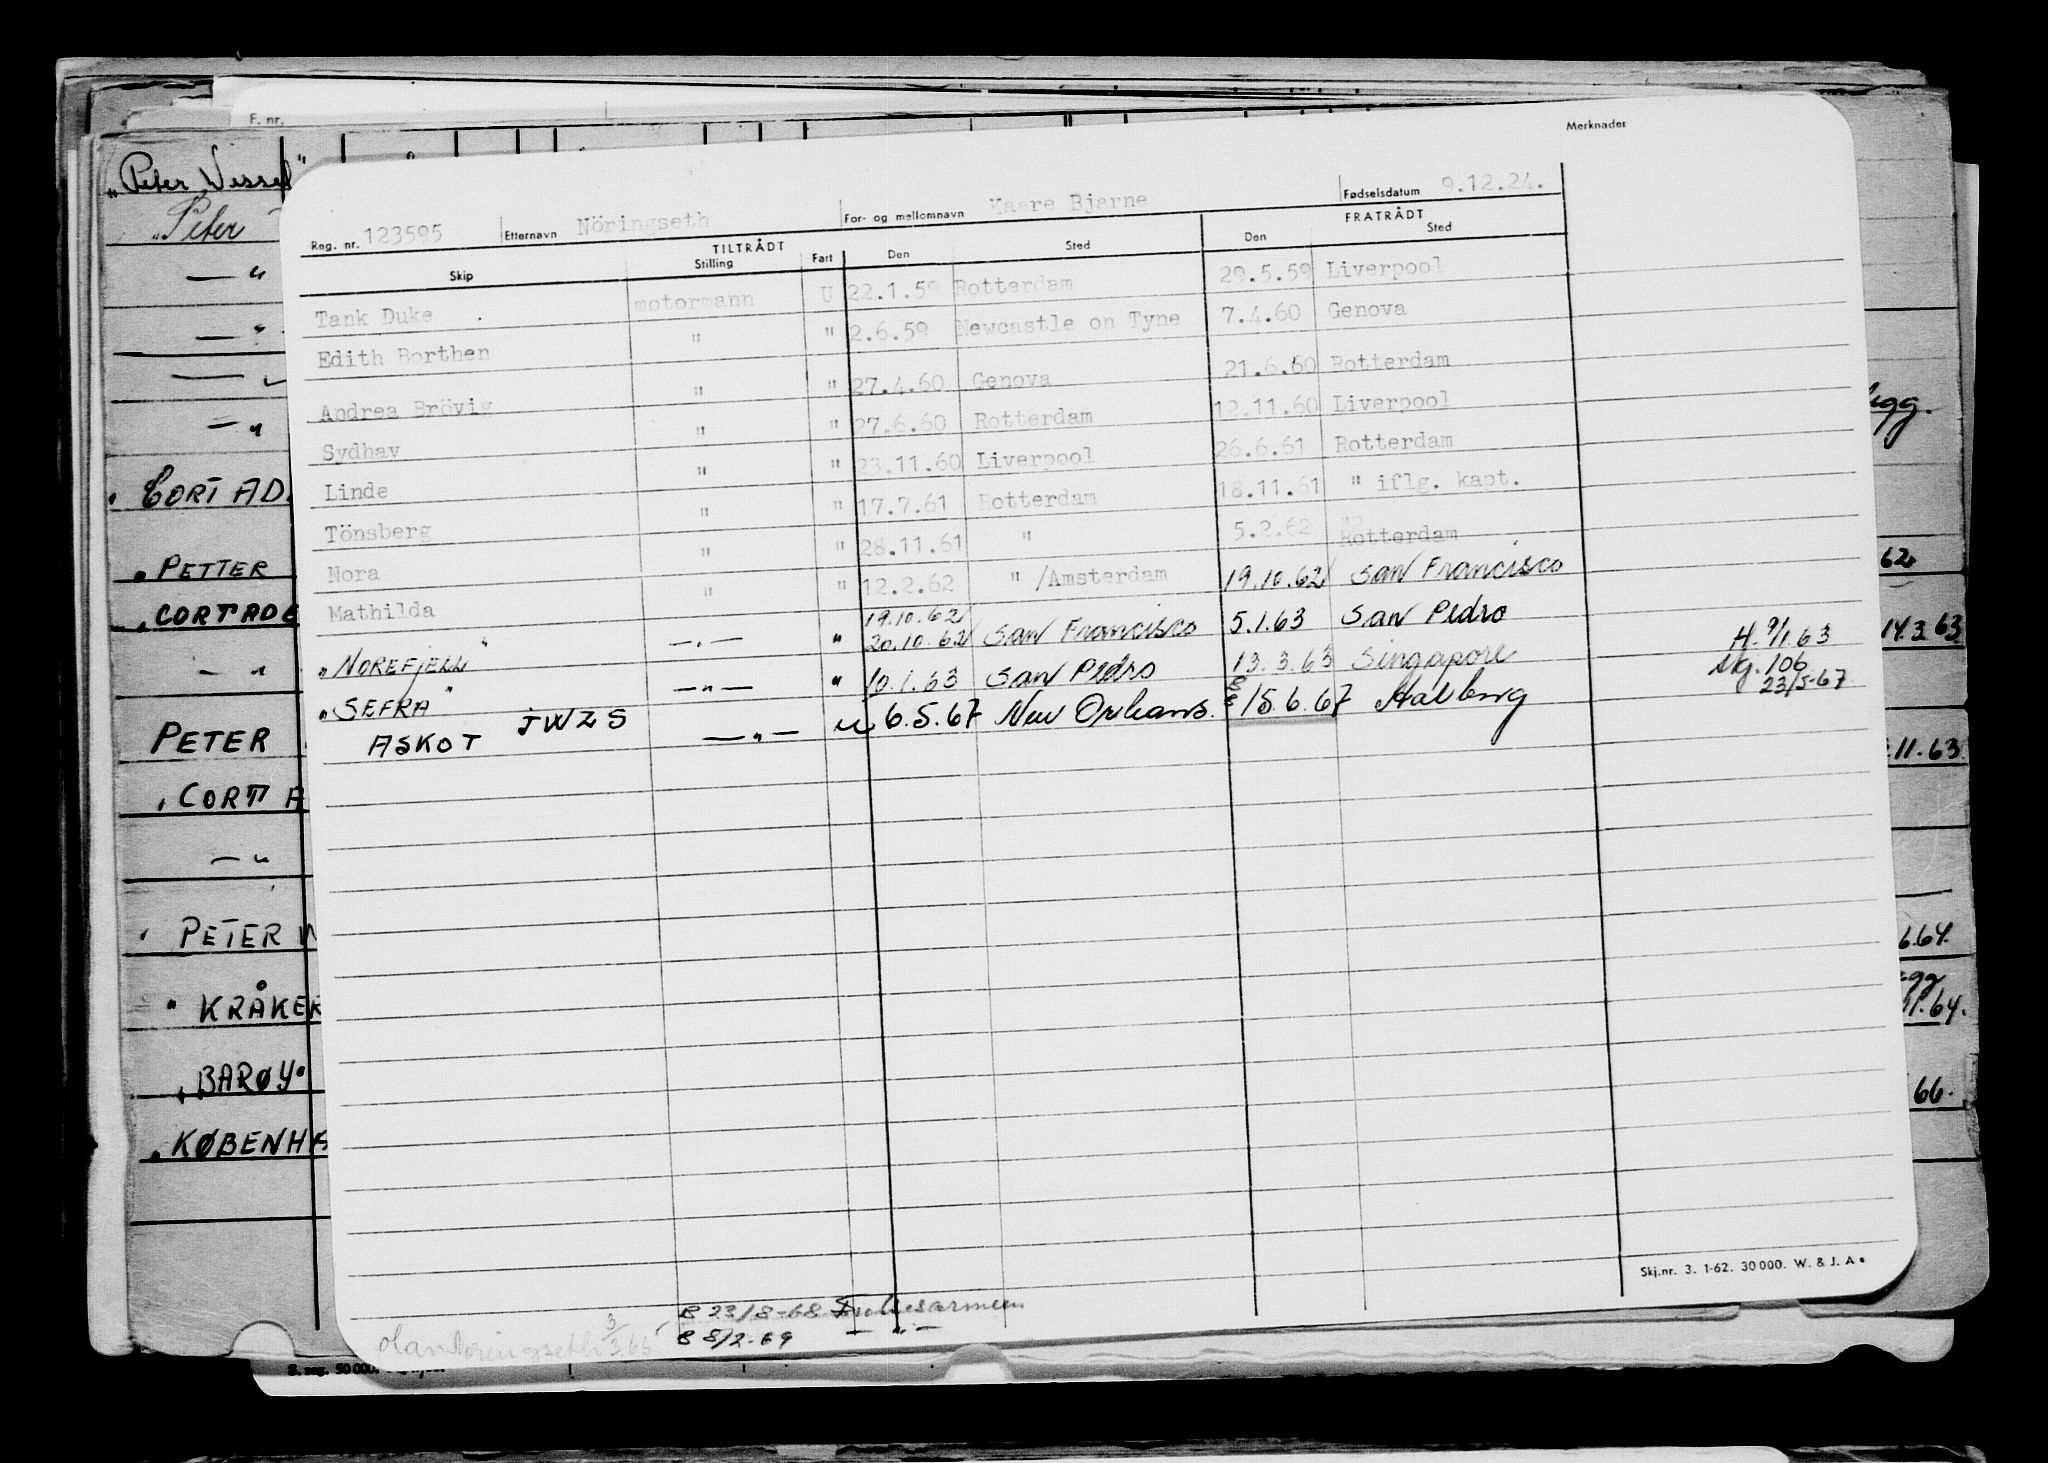 F. nr.
Merknader
„Peter Wessel"
„Peter
Reg. nr. 123595 Etternavn Nöringseth For- og mellomnavn Kaare Bjarne Fødselsdatum 9.12.24.
TILTRÅDT FRATRÅDT
Skip Stilling Fart Den Sted Den Sted
Tank Duke motormann U 22.1.59 Rotterdam 29.5.59 Liverpool
Edith Borthen " " 2.6.59 Newcastle on Tyne 7.4.60 Genova
Andrea Brövig " " 27.4.60 Genova 21.6.60 Rotterdam
Sydhav " " 27.6.60 Rotterdam 12.11.60 Liverpool
Linde " " 23.11.60 Liverpool 26.6.61 Rotterdam
Tönsberg " " 17.7.61 Rotterdam 18.11.61 " iflg. kapt.
Nora " " 28.11.61 " 5.2.62 Rotterdam
Mathilda " " 12.2.62 " /Amsterdam 19.10.62 San Francisco
19.10.62
„NOREFJELL" —„— " 20.10.62 San Francisco 5.1.63 San Pedro H. 9/1.63
„SEFRA" —„— " 10.1.63 San Pedro 13.3.63 Singapore 106
23/5-67
ASKOT JWZS —„— u 6.5.67 New Orleans. 15.6.67 Aalborg
— „
— „
— „
CORT AD
PETTER 62
CORT ADE
— „ 14.3.63
PETER 11.63
CORT A
— „
PETER W 6.64.
KRÅKER 11.64.
„BARØY"
66.
KØBENHA
Skj.nr. 3. 1-62. 30000. W. & J. A
B 23/8-68 Frelsesarmeen
B 8/2-69 —„—
Nöringseth 3/3.65
S. reg. 50000.